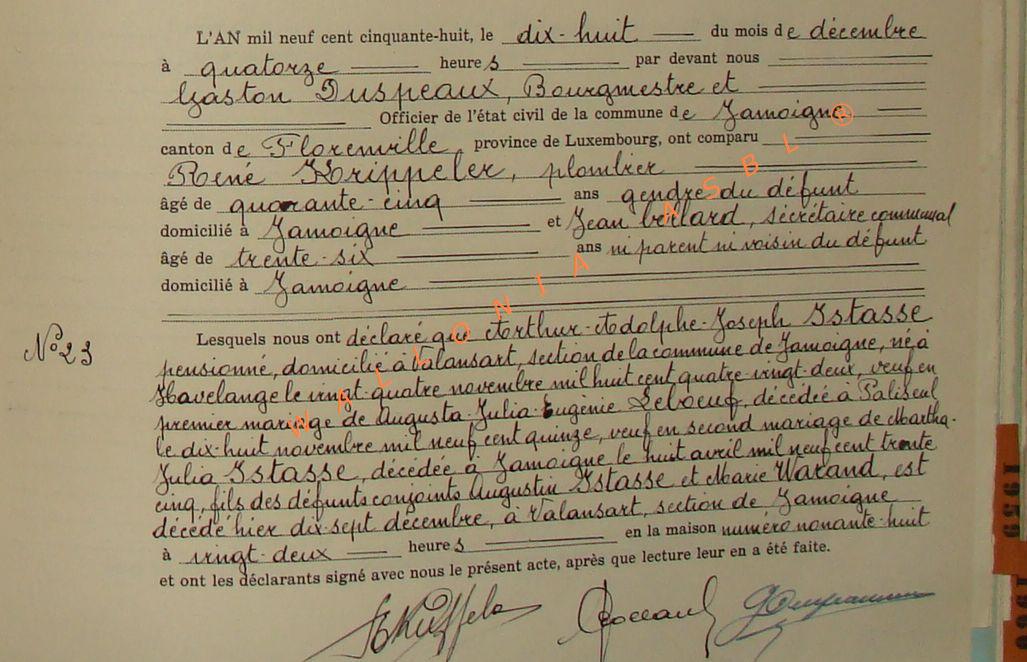 L'AN mil neuf cent cinquante-huit, le dix-huit du mois de décembre
à quatorze heures par devant nous
Gaston Duspeaux, Bourgmestre et
Officier de l'état civil de la commune de Jamoigne
canton de Florenville, province de Luxembourg, ont comparu
René Krippeler, plombier
âgé de quarante-cinq ans gendre du défunt
domicilié à Jamoigne et Jean , sécrétaire communal
âgé de trente-six ans ni parent ni voisin du défunt
domicilié à Jamoigne
Lesquels nous ont déclaré que Arthur-Adolphe-Joseph Istasse
N° 23
pensionné, domicilié à Valansart, section de la commune de Jamoigne, né à
Havelange le vingt-quatre novembre mil huit cent quatre-vingt-deux, veuf en
premier mariage de Augusta-Julia-Eugènie Leboeuf, décédée à Paliseul
le dix-huit novembre mil neuf cent quinze, veuf en second mariage de Martha-
Julia Istasse, décédée à Jamoigne le huit avril mil neuf cent trente
cinq, fils des défunts conjoints Augustin Istasse et Marie Warand, est
décédé hier dix-sept décembre, à Valansart, section de Jamoigne
à vingt-deux heures en la maison numéro nonante-huit
et ont les déclarants signé avec nous le présent acte, après que lecture leur en a été faite.
WALLONIA ASBL ®
1959
1960